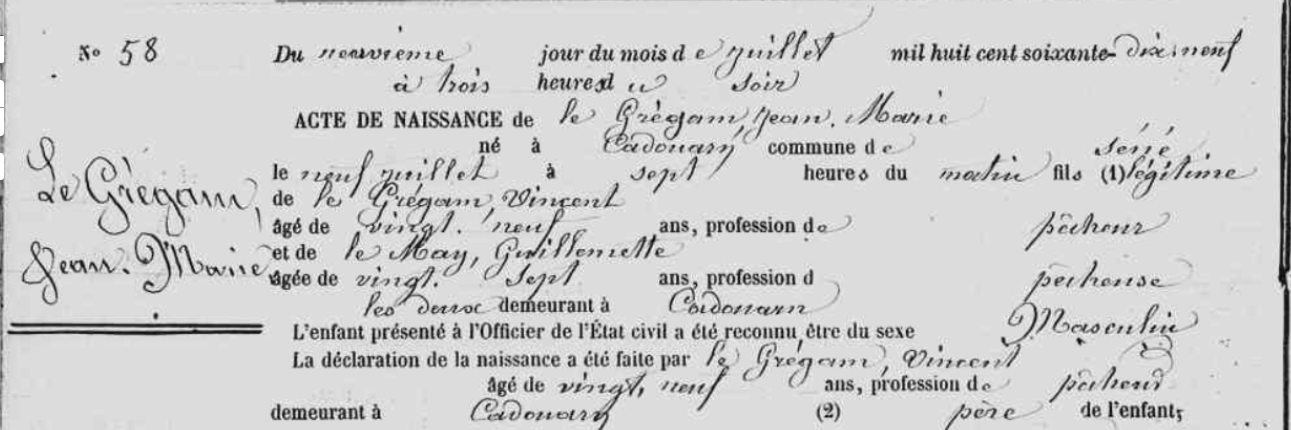 N° 58
Du neuvième jour du mois de juillet mil huit cent soixante-dix-neuf
à trois heures du soir
ACTE DE NAISSANCE de le Grégam, Jean-Marie
né à Cadouarn, commune de séné
le neuf juillet à sept heures du matin fils (1) légitime
de le Grégam, Vincent
âgé de vingt-neuf ans, profession de pêcheur
et de le May, Guillemette
âgée de vingt-sept ans, profession d pêcheuse
les deux demeurant à Cadouarn
L'enfant présenté à l'Officier de l'État civil a été reconnu être du sexe Masculin
La déclaration de la naissance a été faite par le Grégam, Vincent
âgé de vingt-neuf ans, profession de pêcheur
demeurant à Cadouarn (2) père de l'enfant;
Le Grégam,
Jean-Marie